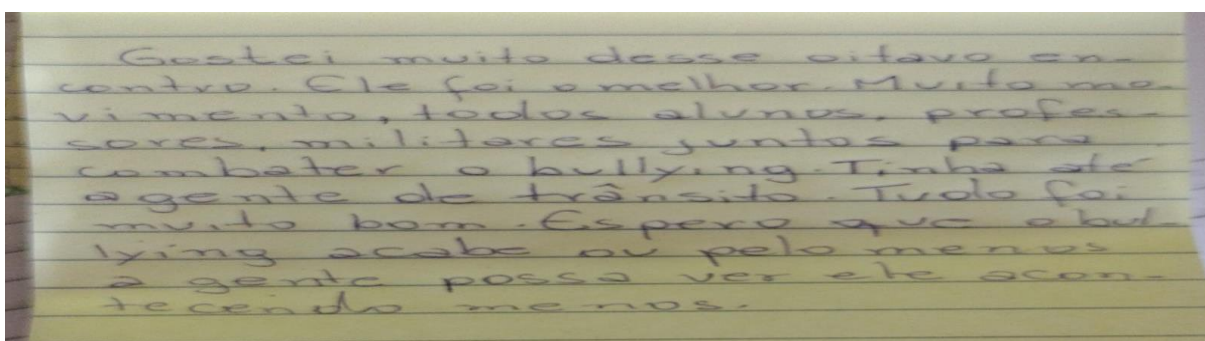 Gostei muito desse oitavo en-
contro. Ele foi o melhor. Muito mo-
vimento, todos alunos, profes-
sores, militares juntos para
combater o bullying. Tinha até
agente de trânsito. Tudo foi
muito bom. Espero que o bul-
lying acabe ou pelo menos
a gente possa ver ele acon-
tecendo menos.